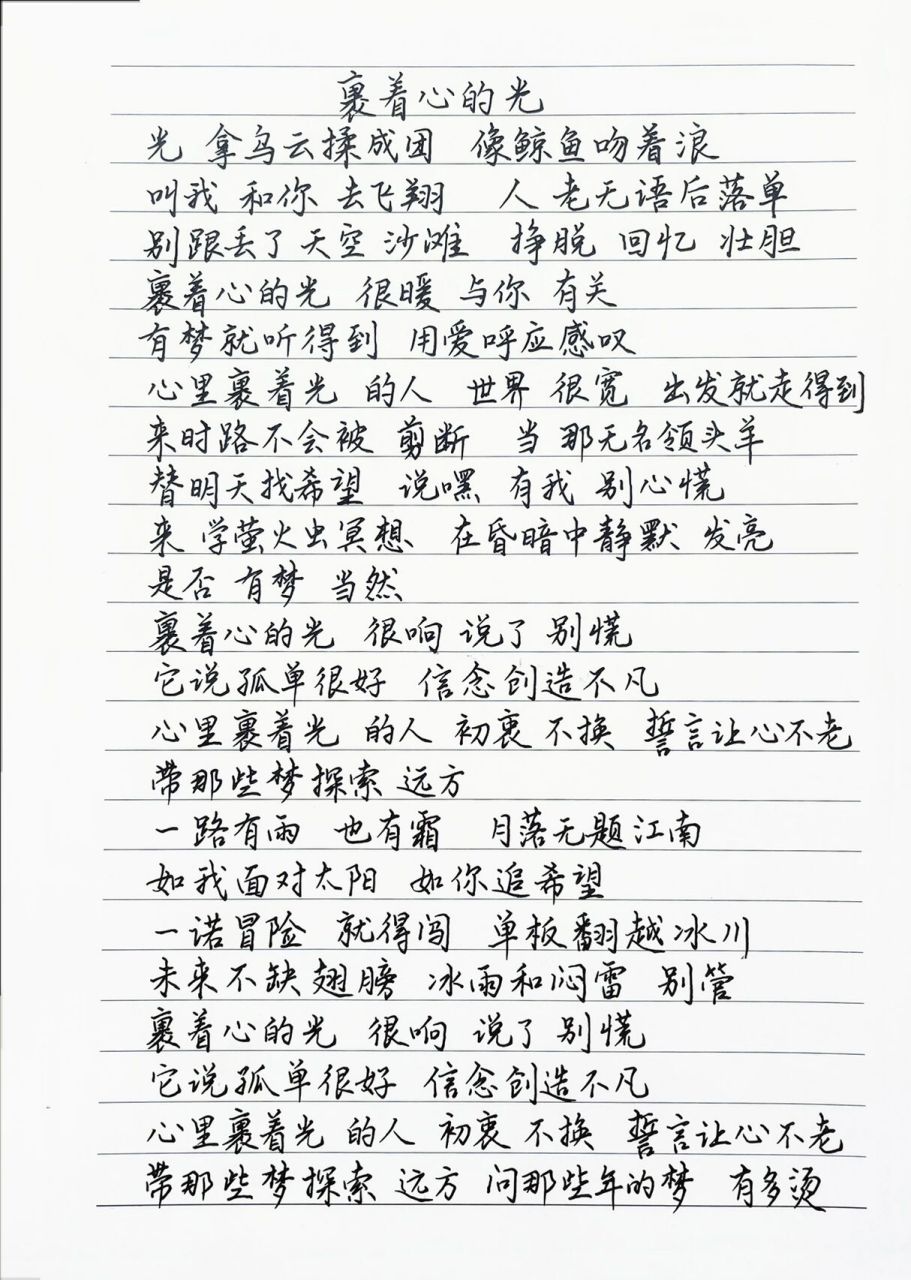 裹着心的光
光 拿乌云揉成团 像鲸鱼吻着浪
叫我 和你 去飞翔 人 老无语后落单
别跟丢了 天空 沙滩 挣脱 回忆 壮胆
裹着心的光 很暖 与你 有关
有梦就听得到 用爱呼应感叹
心里裹着光 的人 世界 很宽 出发就走得到
来时路不会被 剪断 当 那无名领头羊
替明天找希望 说嘿 有我 别心慌
来 学萤火虫冥想 在昏暗中静默 发亮
是否 有梦 当然
裹着心的光 很响 说了 别慌
它说孤单很好 信念创造不凡
心里裹着光 的人 初衷 不换 誓言让心不老
带那些梦探索 远方
一路有雨 也有霜 月落无题江南
如我面对太阳 如你追希望
一诺冒险 就得闯 单板翻越冰川
未来不缺翅膀 冰雨和闷雷 别管
裹着心的光 很响 说了 别慌
它说孤单很好 信念创造不凡
心里裹着光 的人 初衷 不换 誓言让心不老
带那些梦探索 远方 问那些年的梦 有多烫